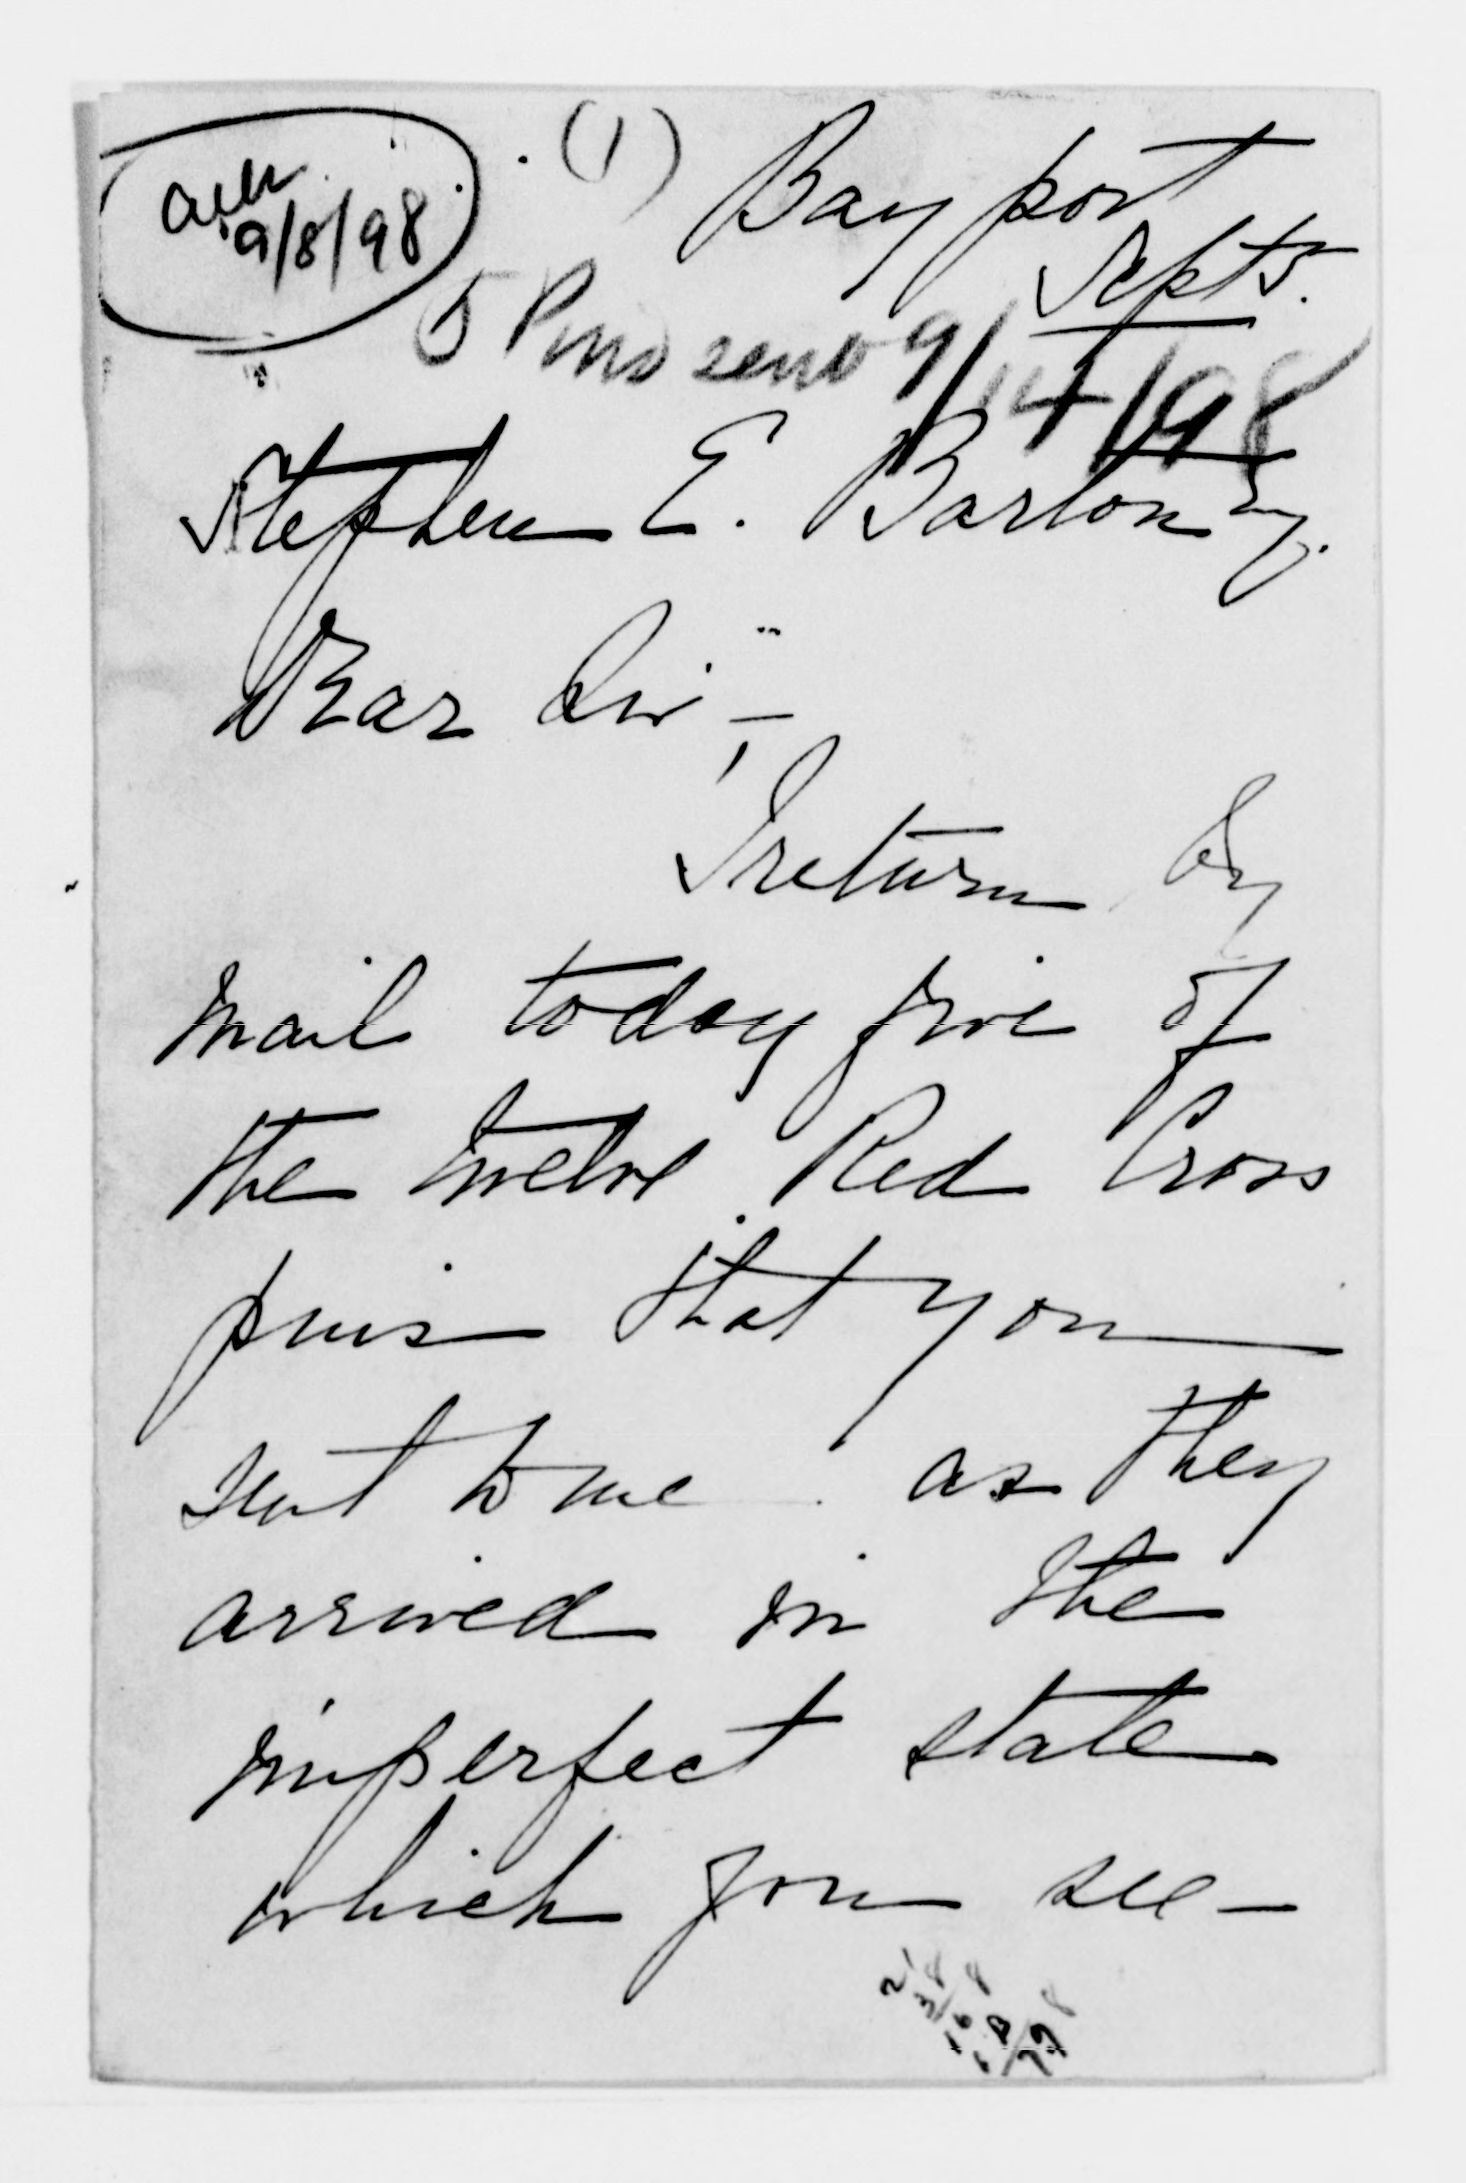 (1)
Bayport
Sept 5.
ack
9/8/98
5 Pins sent 9/14/98
Stephen E. Barton Esq.
Dear Sir –
I return by
mail today five of
the twelve Red Cross
pins that you
sent to me as they
arrived in the
imperfect state
which you see –